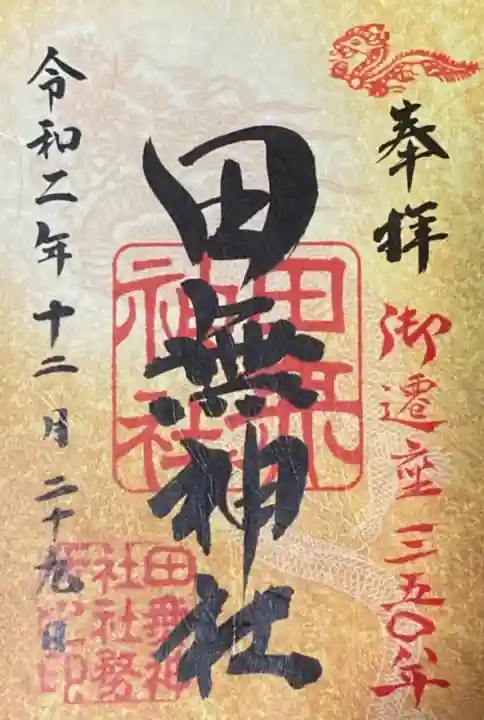 奉拝
御遷座三五〇年
田無神社
令和二年十二月二十九日
田無神社
田無神社社務所之印